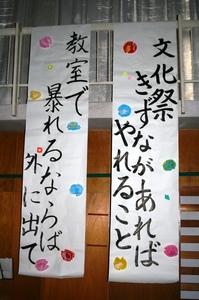 文化祭
きずながあれば
やれること
教室で
暴れるならば
外に出て